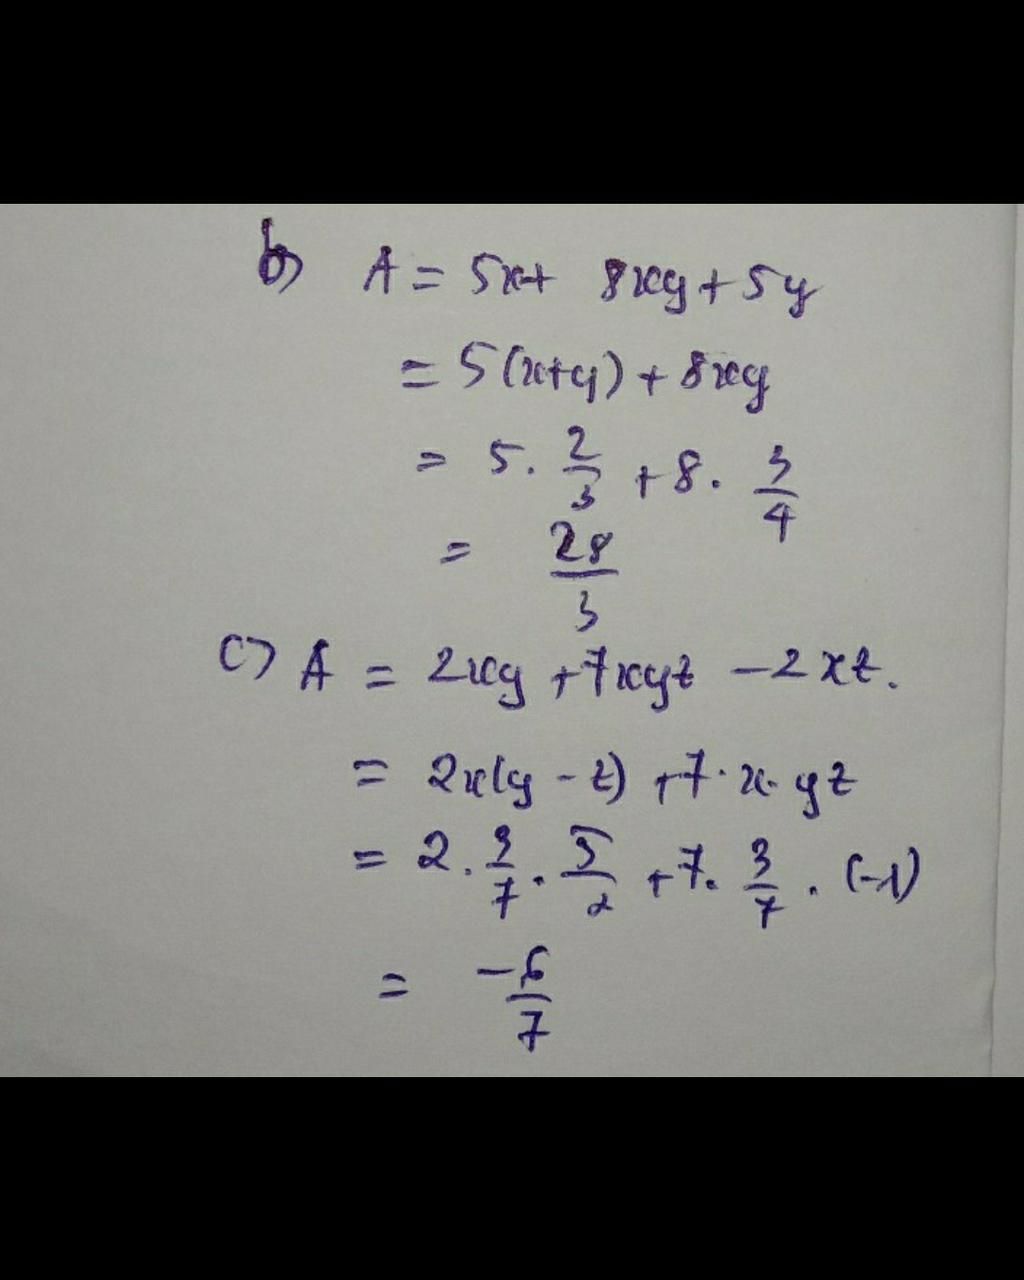 b) A = 5x + 8xy + 5y
= 5(x+y) + 8xy
= 5 . 2/3 + 8 . 3/4
= 28/3
c) A = 2xy + 7xyz - 2xz.
= 2x(y - z) + 7 . x . yz
= 2 . 3/7 . 5/2 + 7 . 3/7 . (-1)
= -6/7